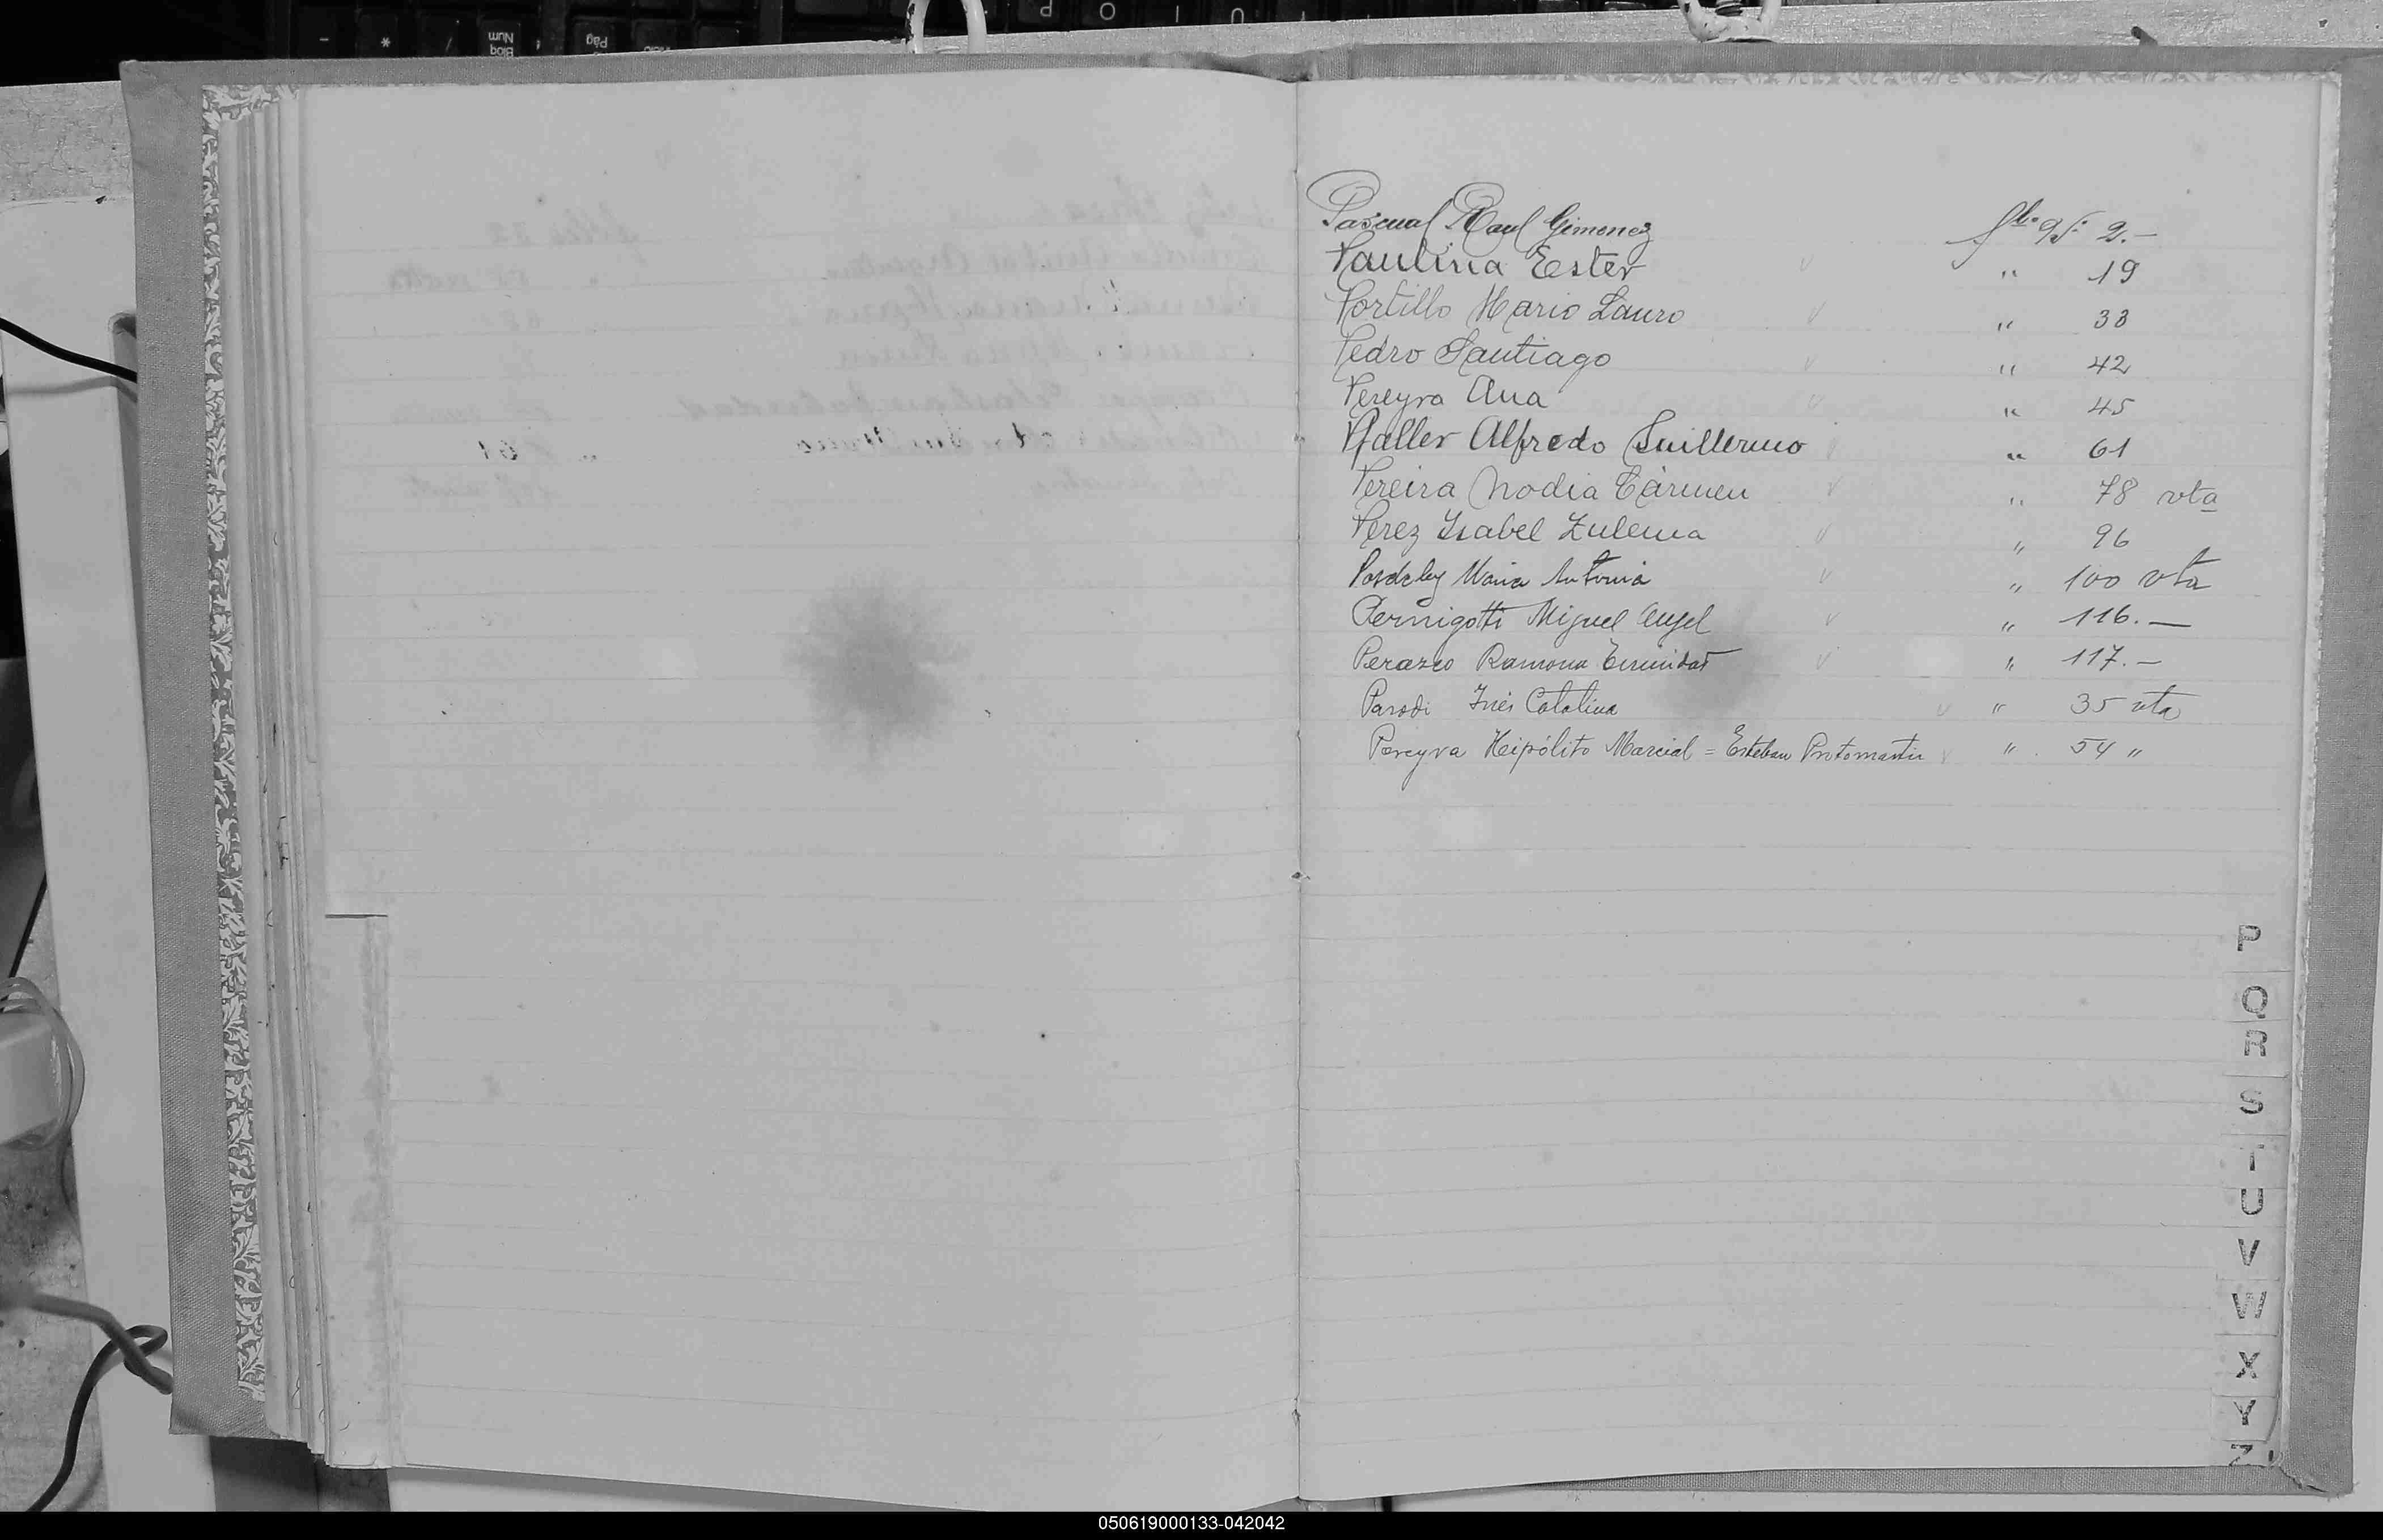 Pascual Raul Gimenez 2.—
Paulina Ester " 19
Portillo Mario Lauro " 33
Pedro Santiago " 42
Pereyra Ana " 45
Pfaller Alfredo Guillermo " 61
Pereira Nodia Cármen " 78 vta
Perez Ysabel Zulema " 96
Maria Antonia " 100 vta
Pernigotti Miguel Angel " 116.—
Ramona " 117.—
Parodi Inés Catalina " 35 vta
Pereyra Heipólito Marcial = Esteban Protomartir " 54 "
P
Q
R
S
T
U
V
W
X
Y
Z
050619000133-042042